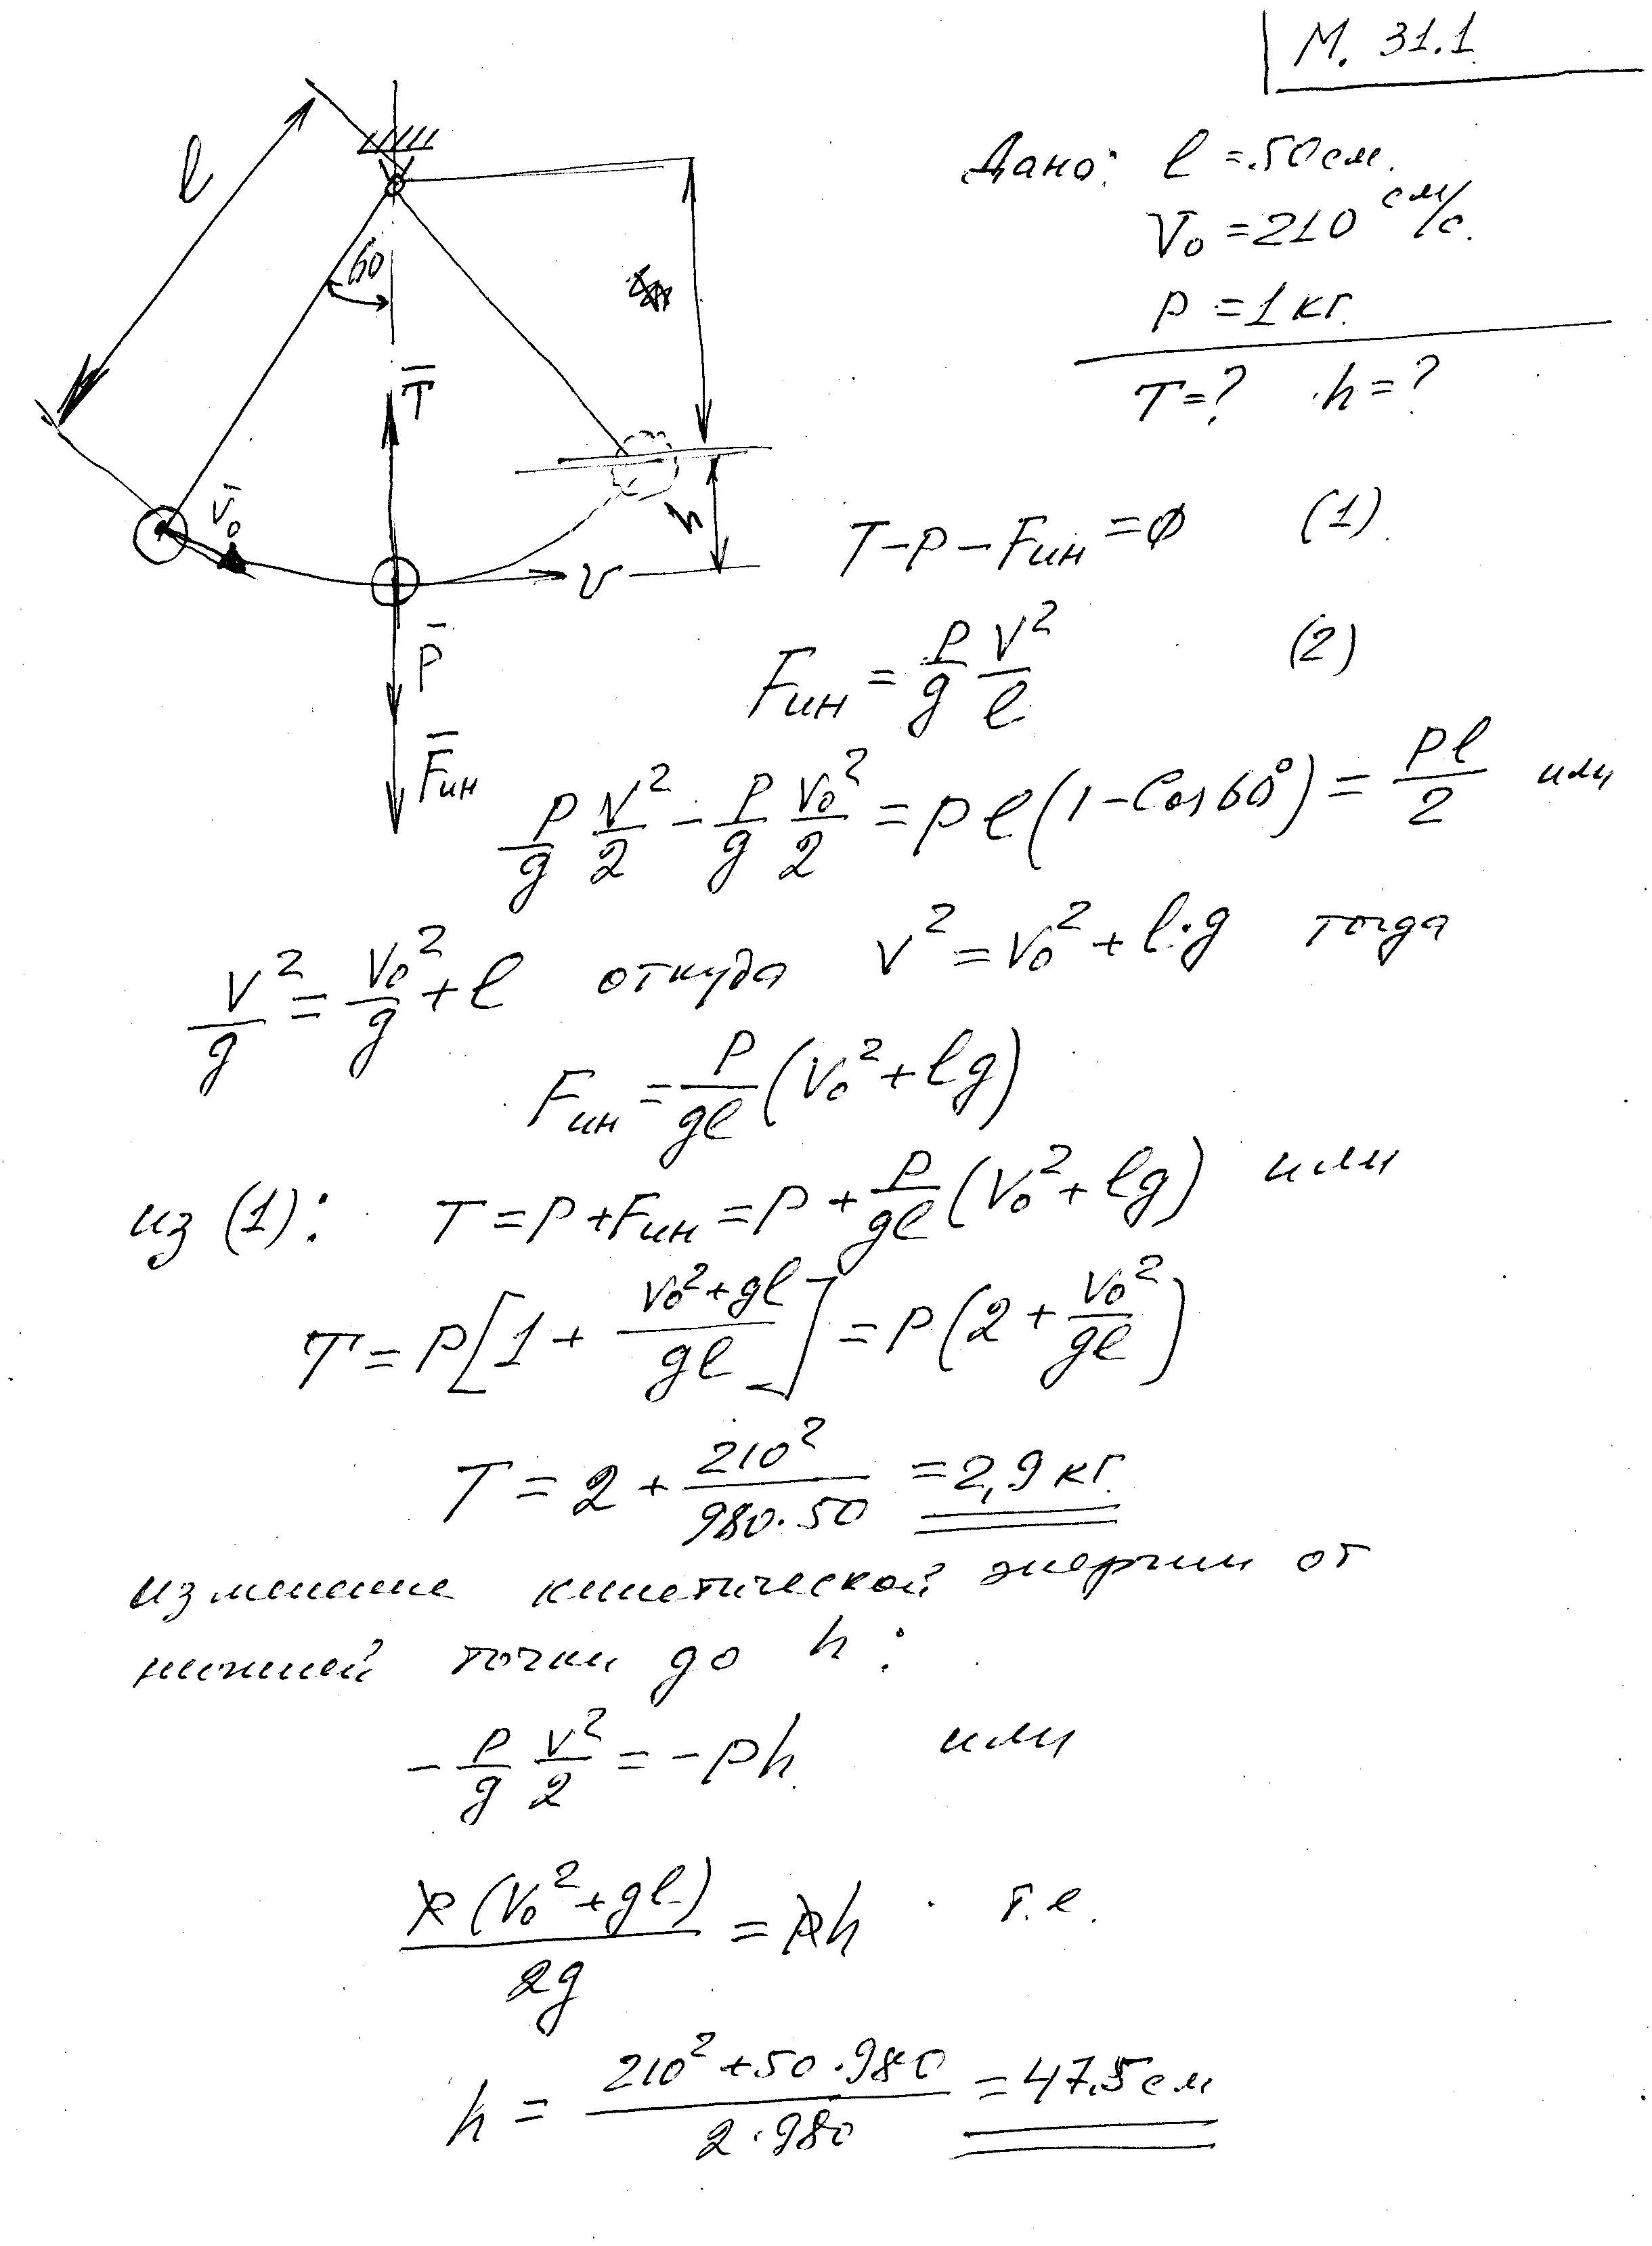 М. 31.1
Дано: l = 50 см.
V̄₀ = 210 см/с.
P = 1 кг.
T = ? h = ?
l
60
T̄
v̄₀
h
V
P̄
F̄ин
T − P − Fин = 0 (1)
Fин = P/g V²/l (2)
P/g V²/2 − P/g V₀²/2 = Pl(1 − Cos 60°) = Pl/2 или
V²/g = V₀²/g + l откуда V² = V₀² + l·g тогда
Fин = P/gl (V₀² + lg)
из (1): T = P + Fин = P + P/gl (V₀² + lg) или
T = P[1 + (V₀² + gl)/gl] = P(2 + V₀²/gl)
T = 2 + 210²/980·50 = 2,9 кг.
изменение кинетической энергии от
нижней точки до h:
− P/g V²/2 = − Ph или
P(V₀² + gl)/2g = Ph т.е.
h = (210² + 50·980)/2·980 = 47,5 см